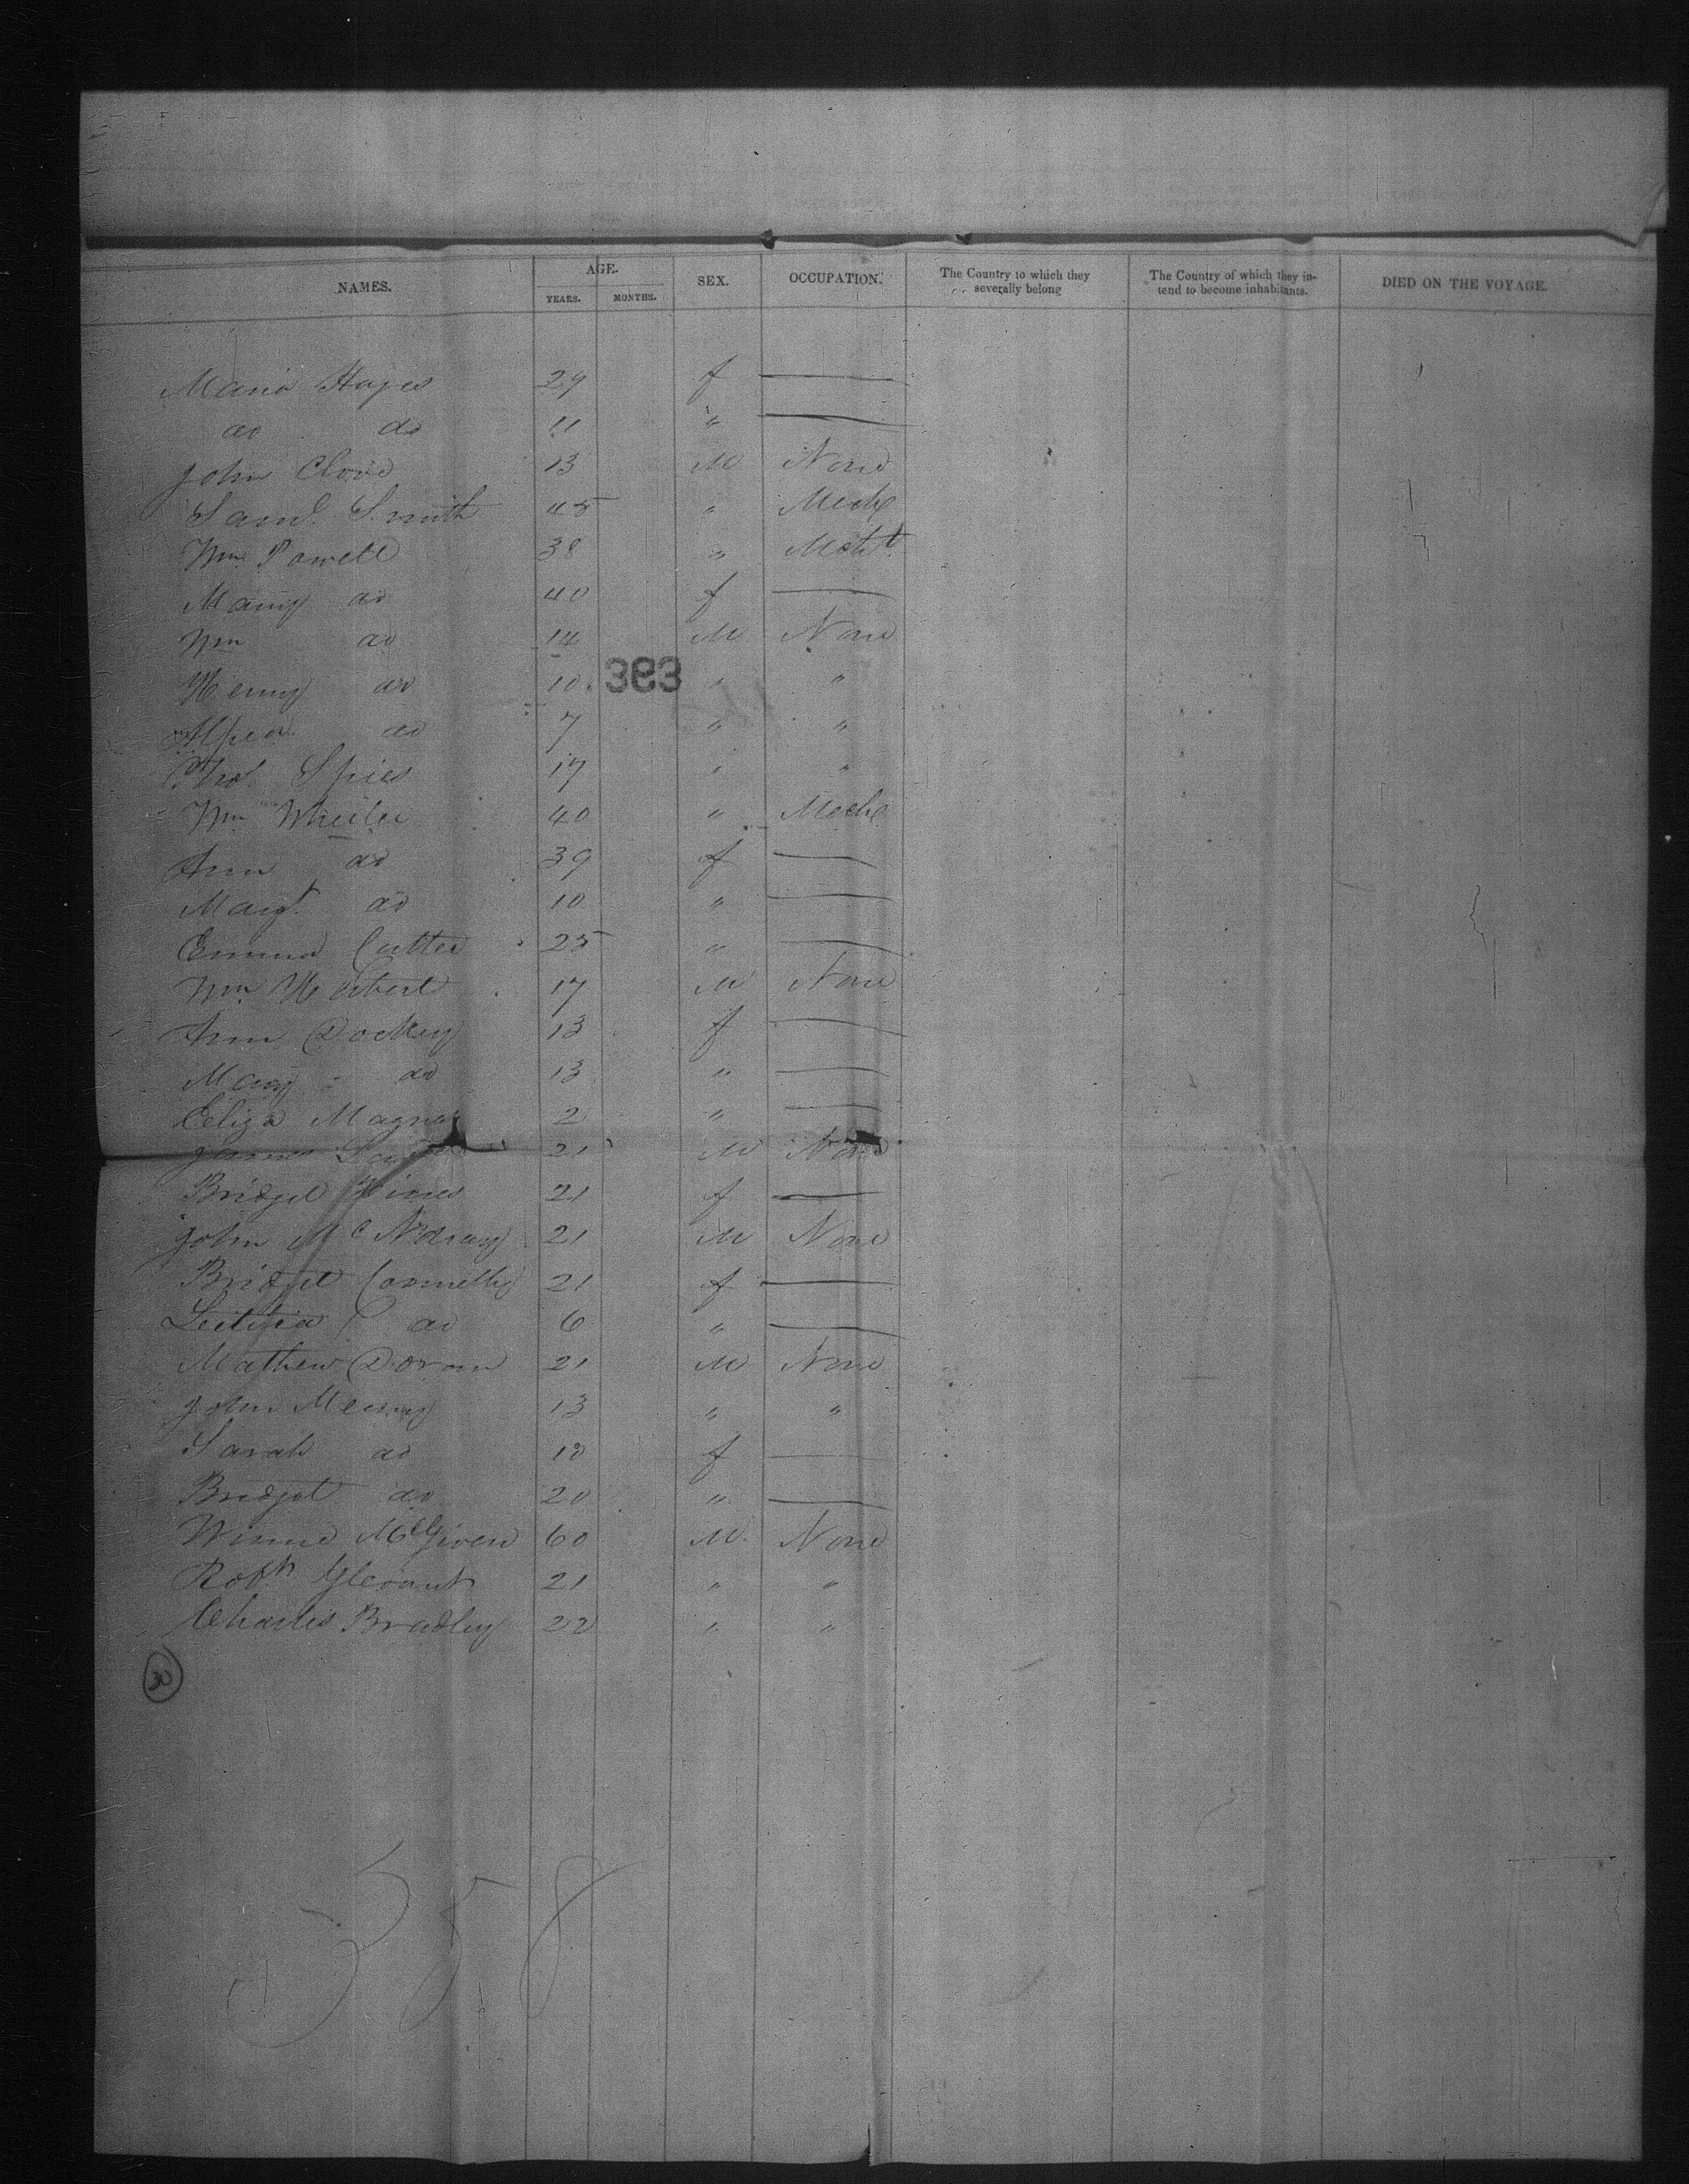 NAMES. AGE. SEX. OCCUPATION. The Country to which they severally belong The Country of which they in- tend to become inhabitants. DIED ON THE VOYAGE.
YEARS. MONTHS.
Maria Hayes 29 f —
do do 11 " —
John 13 M None
Saml. Smith 45 " Mech
Wm Powell 38 "
Mary do 40 f —
Wm do 14 M None
Henry do 10 " "
383
do 7 " "
Thos. Spies 17 " "
Wm Wheeler 40 " Mech
Ann do 39 f —
Margt. do 10 " —
Emma Cutter 25 " —
Wm Herbert 17 M None
Ann Dockey 13 f —
Mary do 13 " —
Eliza 2 " —
James 21 M None
Bridget 21 f —
John 21 M None
Bridget Connelly 21 f —
Letitia do 6 " —
Mathew Doran 21 M None
John 13 " "
Sarah do f —
Bridget do 20 " —
Winne 60 M. None
21 " "
Charles Bradley 22 " "
30
358